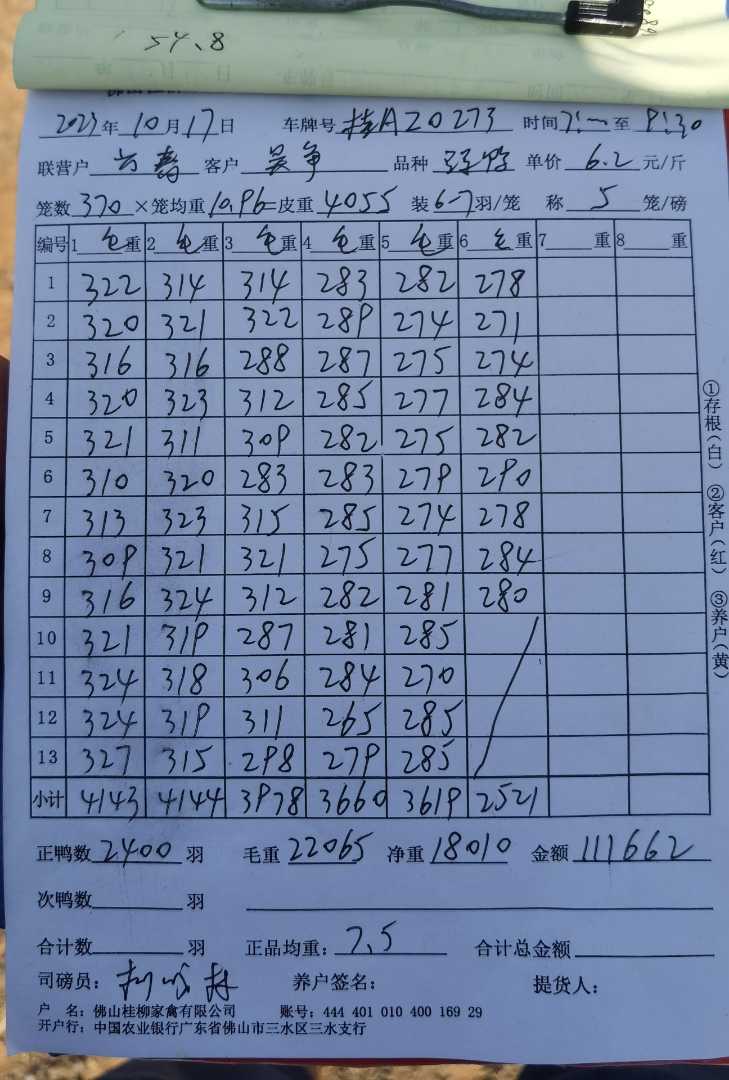 54.8
2023年10月17日 车牌号 桂A20273 时间7:一至9:30
联营户 客户 吴争 品种 单价 6.2 元/斤
笼数 370 ×笼均重10.96=皮重 4055 装6-7羽/笼 称 5 笼/磅
编号 1 毛重 2 毛重 3 毛重 4 毛重 5 毛重 6 毛重 7 重 8 重
1 322 314 314 283 282 278
2 320 321 322 289 274 271
3 316 316 288 287 275 274
4 320 323 312 285 277 284
5 321 311 309 282 275 282
6 310 320 283 283 279 290
7 313 323 315 285 274 278
8 309 321 321 275 277 284
9 316 324 312 282 281 280
10 321 319 287 281 285
11 324 318 306 284 270
12 324 319 311 265 285
13 327 315 298 279 285
小计 4143 4144 3978 3660 3619 2521
正鸭数 2400 羽 毛重 22065 净重 18010 金额 111662
次鸭数 羽
合计数 羽 正品均重: 7.5 合计总金额
司磅员: 养户签名: 提货人:
户 名: 佛山桂柳家禽有限公司 账号: 444 401 010 400 169 29
开户行: 中国农业银行广东省佛山市三水区三水支行
①存根(白) ②客户(红) ③养户(黄)